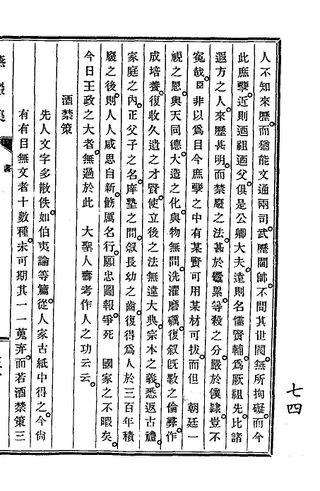 人不知來歷。而猶能文通兩司。武歷閫帥。不問其世閥。無所拘礙。而今
此庶孼。近則洒祖洒父。俱是公卿大夫。遠則名儒賢輔。爲厥祖先。比諸
遐方之人。來歷甚明。而禁廢之法。甚於釁累。等殺之分。嚴於僕隷。豈不
寃哉。臣非以爲目今庶孼之中。有某賢可用。某材可拔。而但 朝廷一
視之恩。與天同德。大造之化。與物無間。洗濯磨礪。復叙旣斁之倫。導作
成培養。復收久遺之才賢。使立後之法。無違大典。宗本之義。悉返古禮。
家庭之內。正父子之名。庠塾之間。叙長幼之齒。復得爲人於三百年積
廢之後。則人人咸思自新。飭厲名行。願忠圖報。爭死 國家之不暇矣。
今日王政之大者。無過於此 大聖人壽考作人之功云云。
酒禁策
先人文字多散佚。如伯夷論等篇。從人家古紙中得之。今尙
有有目無文者十數種。未可期其一一蒐弃。而若酒禁策三
七四